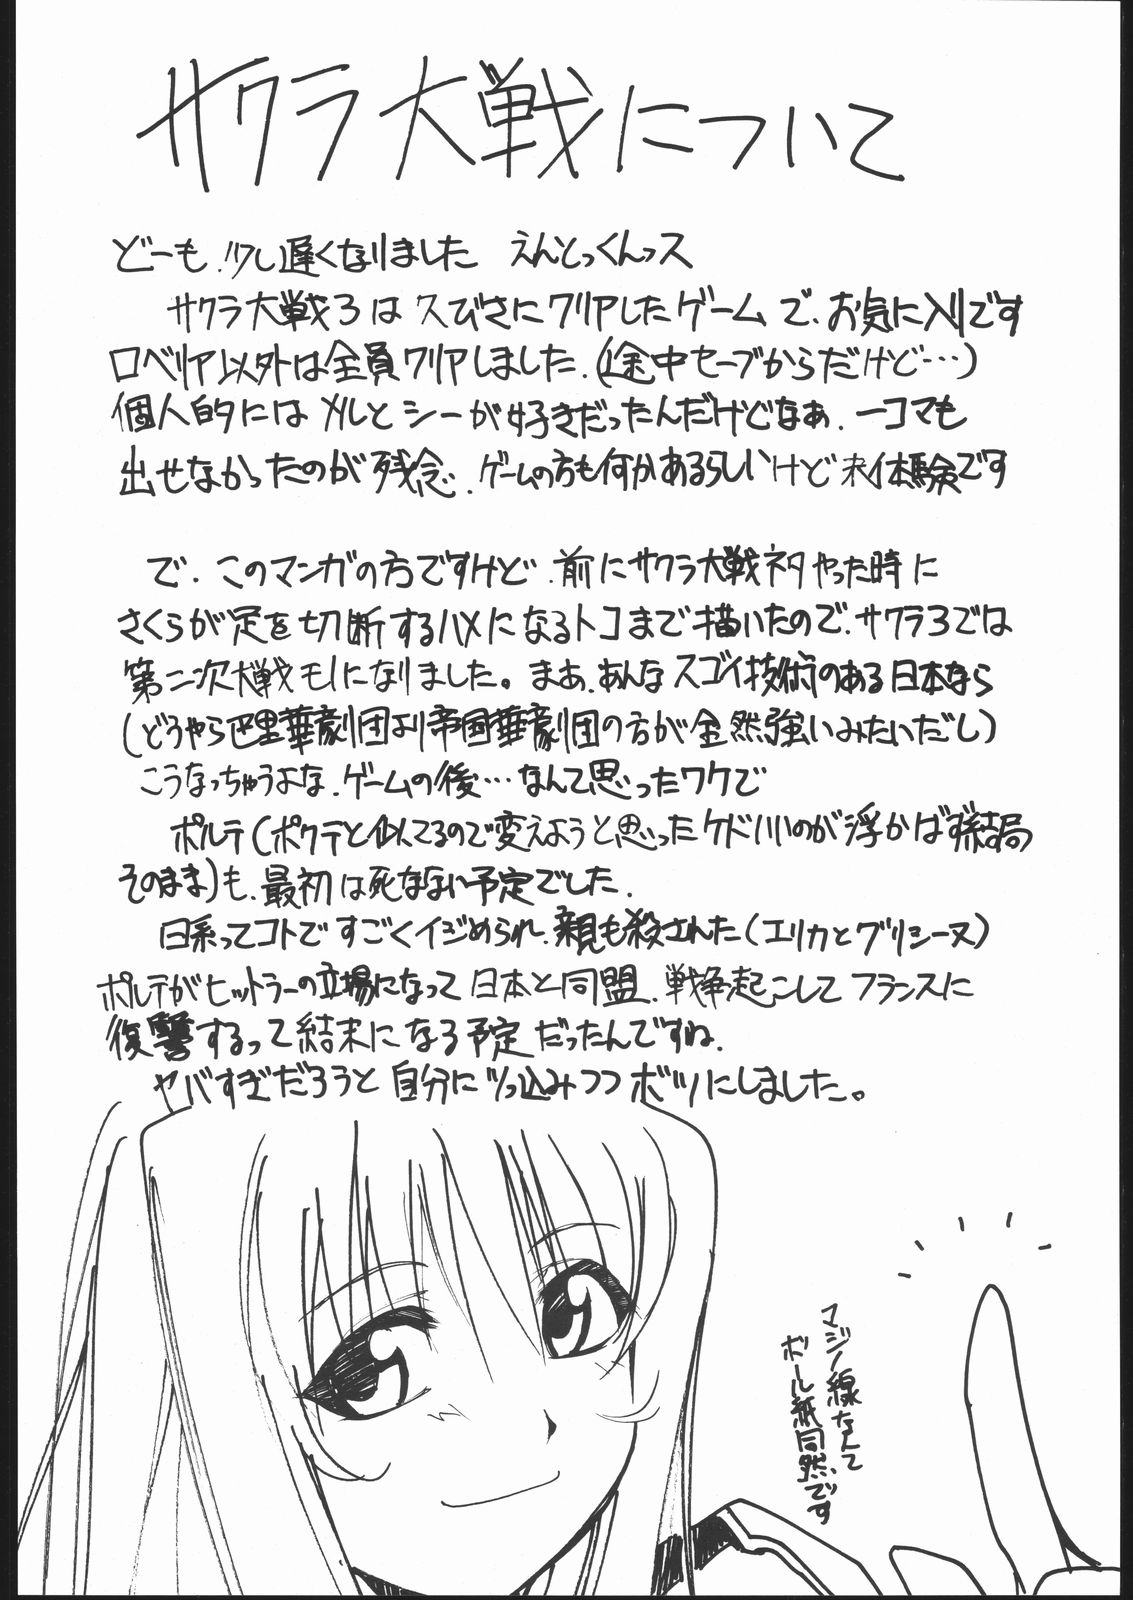 サクラ大戦について
どーも.少し遅くなりました えんとっくんっス
サクラ大戦3は久びさにクリアしたゲームで.お気に入りです
ロベリア以外は全員クリアしました.(途中セーブからだけど…)
個人的にはメルとシーが好きだったんだけどなぁ.一コマも
出せなかったのが残念.ゲームの方も何かあるらしいけど未体験です
で.このマンガの方ですけど.前にサクラ大戦ネタやった時に
さくらが足を切断するハメになるトコまで描いたので.サクラ3では
第二次大戦モノになりました。まあ.あんなスゴイ技術のある日本なら
(どうやら巴里華劇団より帝国華劇団の方が全然強いみたいだし)
こうなっちゃうよな.ゲームの後…なんて思ったワケで
ポルテ(ポクテと似てるので変えようと思ったケドいいのが浮かばず結局
そのまま)も.最初は死なない予定でした.
日系ってコトですごくイジめられ.親も殺された(エリカとグリシーヌ)
ポルテがヒットラーの立場になって日本と同盟.戦争起こしてフランスに
復讐するって結末になる予定だったんですね.
ヤバすぎだろうと自分にツっ込みつつボツにしました。
マジノ線なんて
ボール紙同然.です